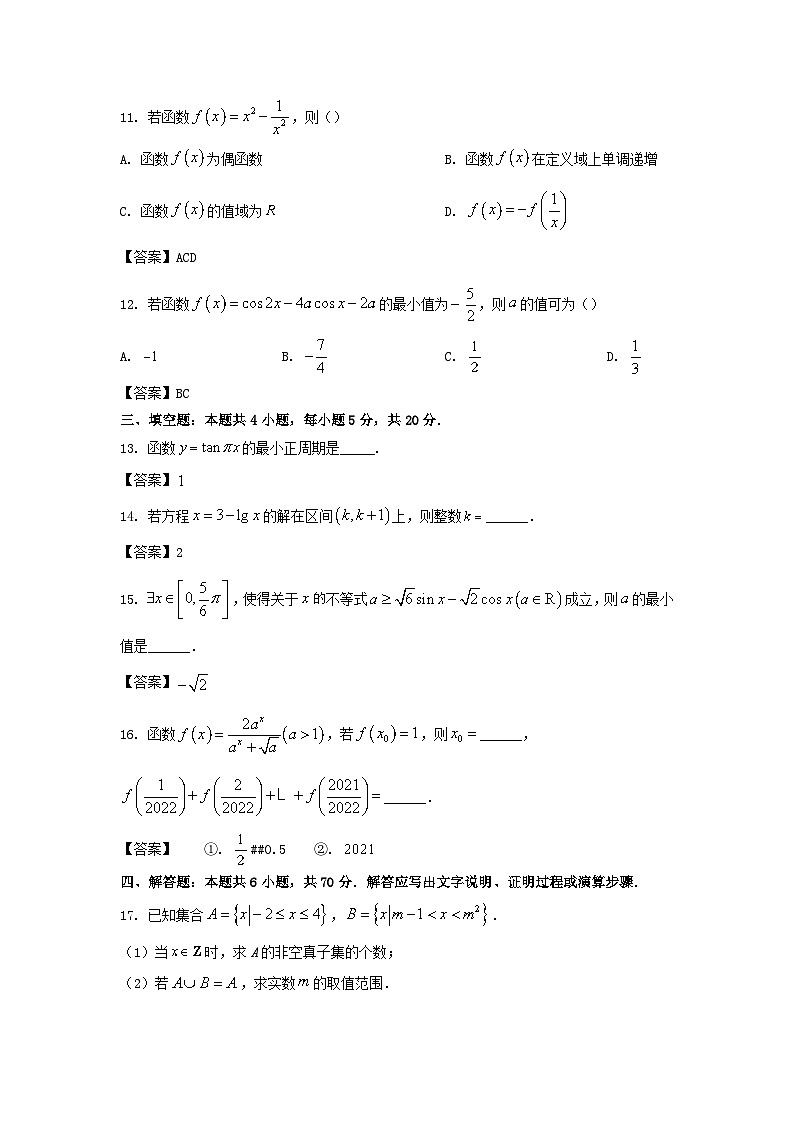 11. 若函数 f(x)=x²−1/x²,则()
A. 函数 f(x)为偶函数 B. 函数 f(x)在定义域上单调递增
C. 函数 f(x)的值域为 R D. f(x)=−f(1/x)
【答案】ACD
12. 若函数 f(x)=cos2x−4acosx−2a 的最小值为−5/2,则a的值可为()
A. −1 B. −7/4 C. 1/2 D. 1/3
【答案】BC
三、填空题:本题共4小题,每小题5分,共20分.
13. 函数 y=tanπx的最小正周期是_____.
【答案】1
14. 若方程 x=3−lg x的解在区间(k,k+1)上,则整数k=______.
【答案】2
15. ∃x∈[0,5/6π],使得关于 x的不等式a≥√6sin x−√2cos x(a∈R)成立,则a的最小
值是______.
【答案】−√2
16. 函数 f(x)=2aˣ/(aˣ+√a)(a>1),若 f(x₀)=1,则x₀=______,
f(1/2022)+f(2/2022)+L +f(2021/2022)=______.
【答案】 ①. 1/2##0.5 ②. 2021
四、解答题:本题共6小题,共70分.解答应写出文字说明、证明过程或演算步骤.
17. 已知集合 A={x|−2≤x≤4},B={x|m−1<x<m²}.
(1)当x∈Z时,求A的非空真子集的个数;
(2)若 A∪B=A,求实数m的取值范围.